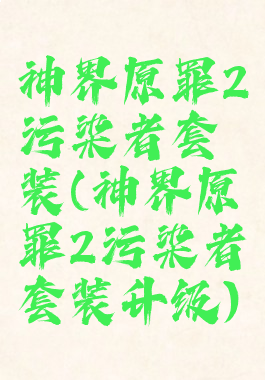 神界原罪2
污染者套
装(神界原
罪2污染者
套装升级)